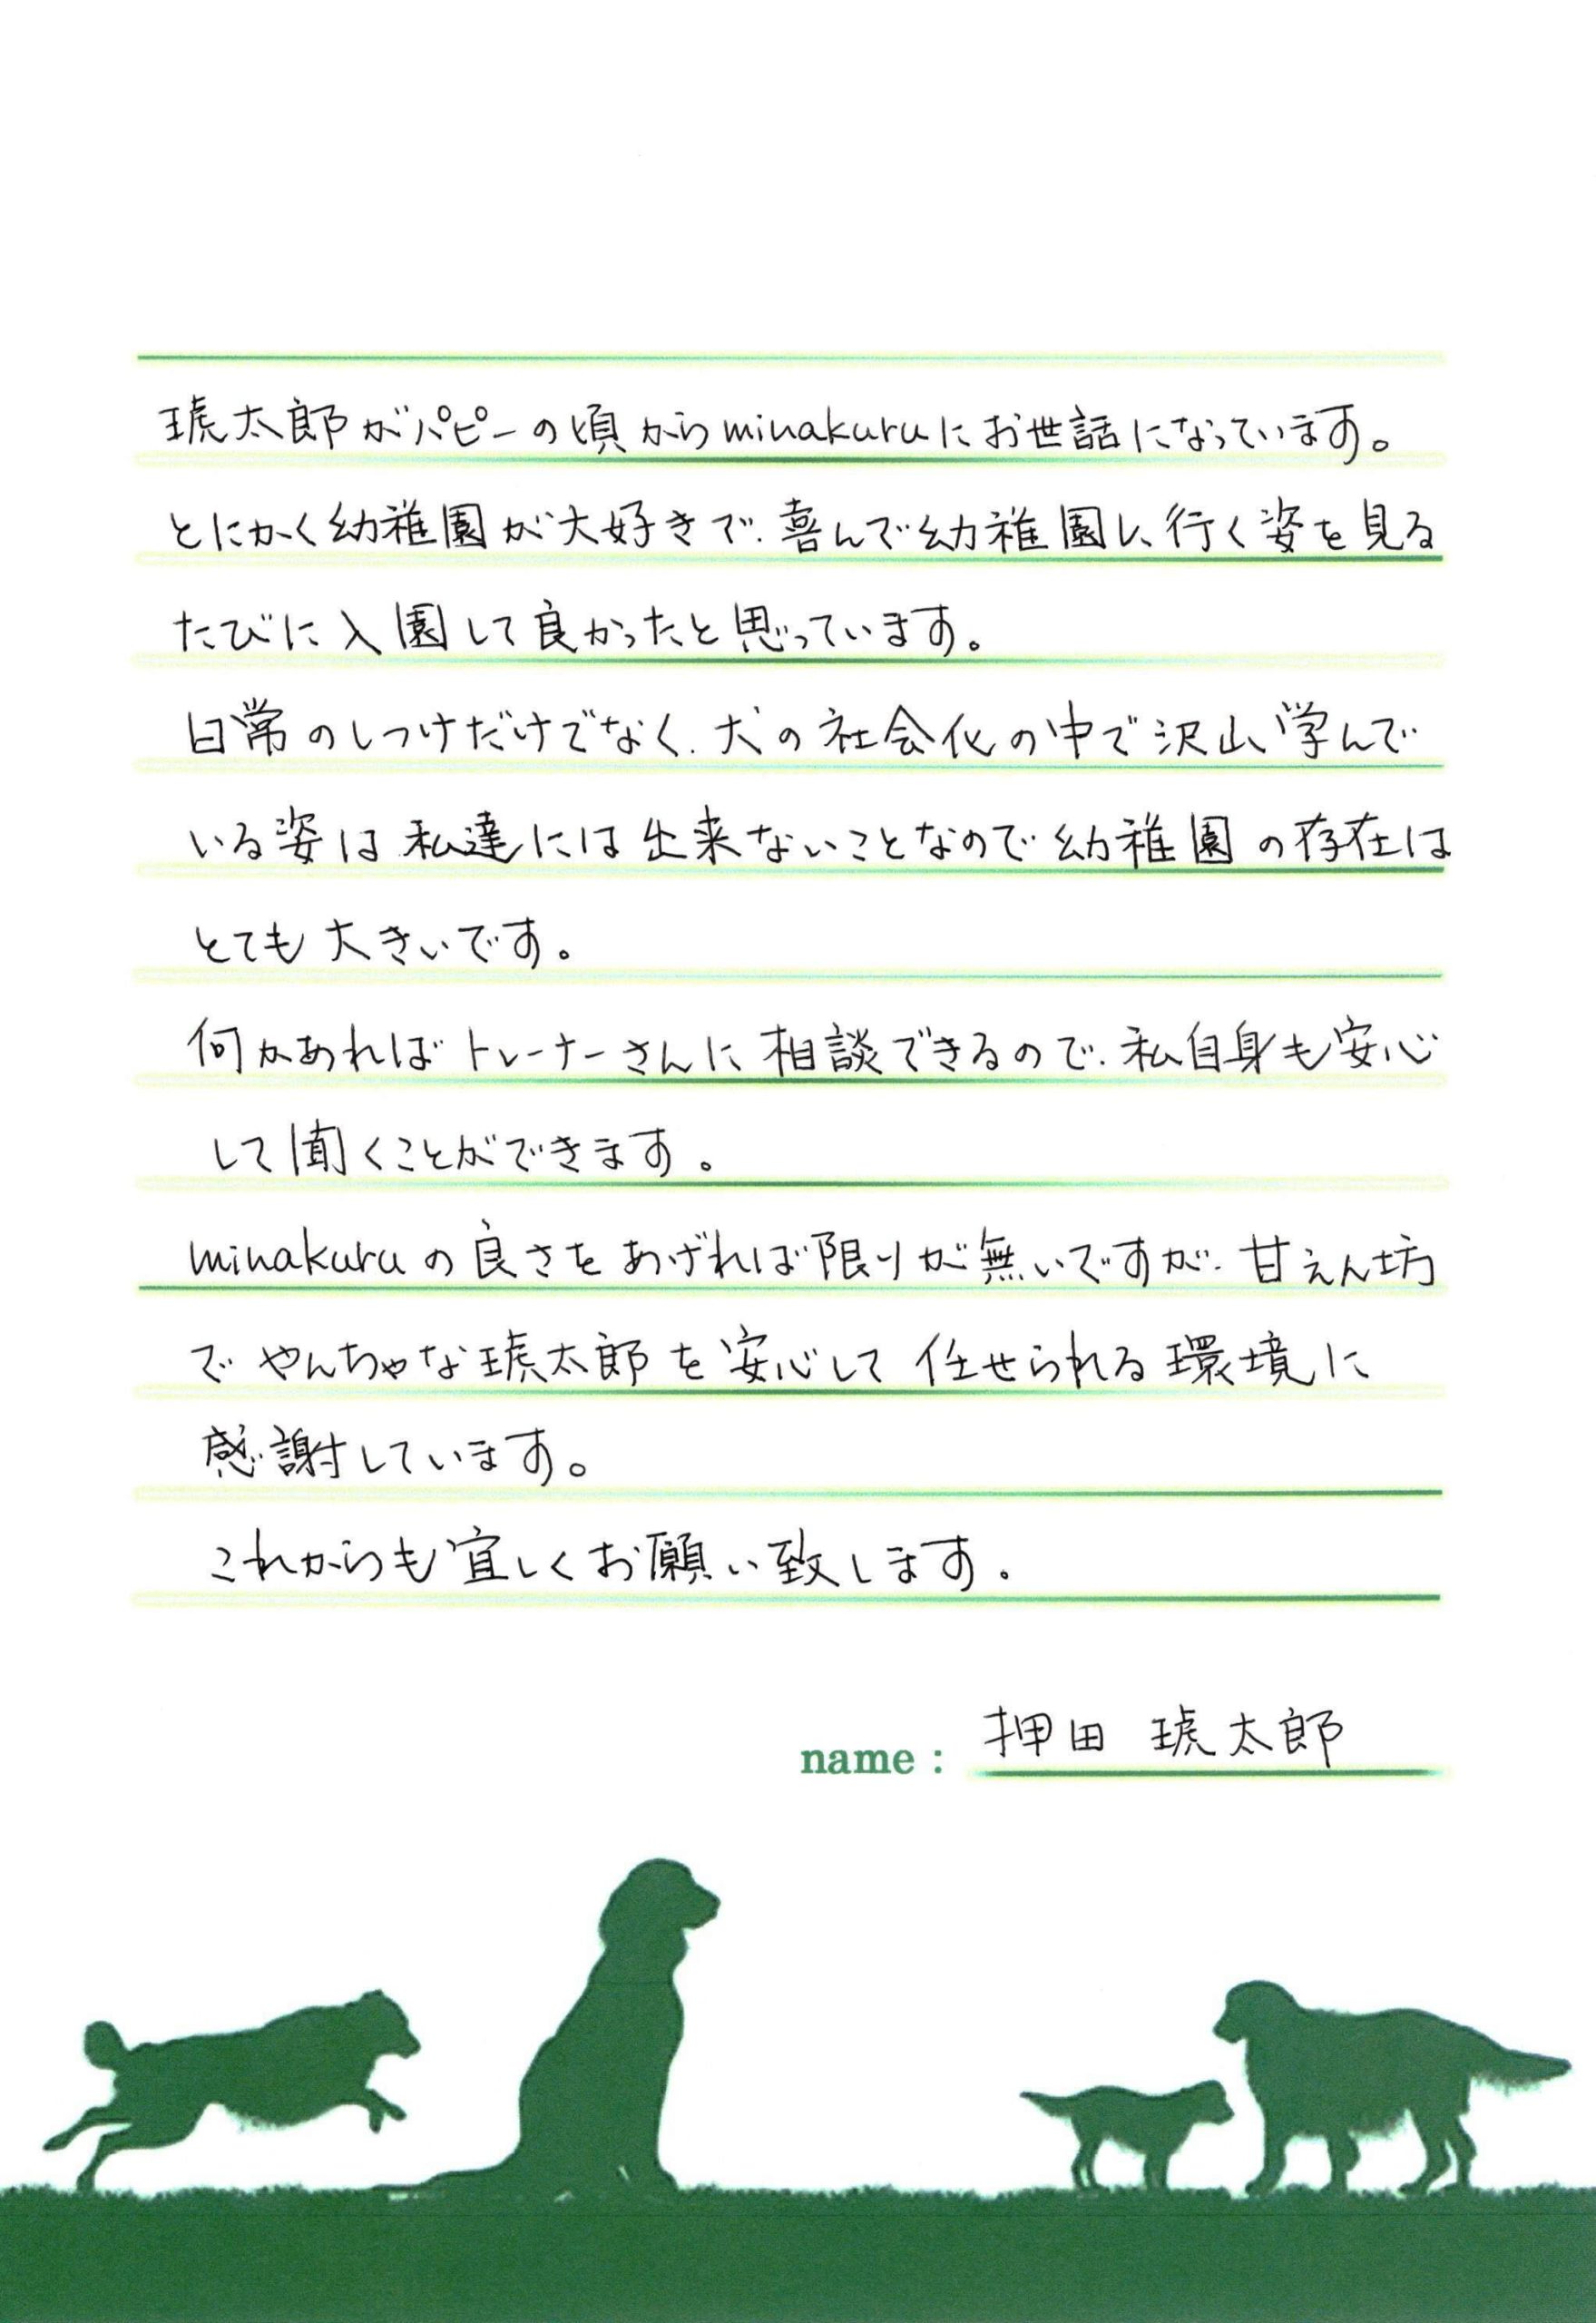 琥太郎がパピーの頃からminakuruにお世話になっています。
とにかく幼稚園が大好きで、喜んで幼稚園に行く姿を見る
たびに入園して良かったと思っています。
日常のしつけだけでなく、犬の社会化の中で沢山学んで
いる姿は私達には出来ないことなので幼稚園の存在は
とても大きいです。
何かあればトレーナーさんに相談できるので、私自身も安心
して聞くことができます。
minakuruの良さをあげれば限りが無いですが、甘えん坊
でやんちゃな琥太郎を安心して任せられる環境に
感謝しています。
これからも宜しくお願い致します。
name : 押田 琥太郎